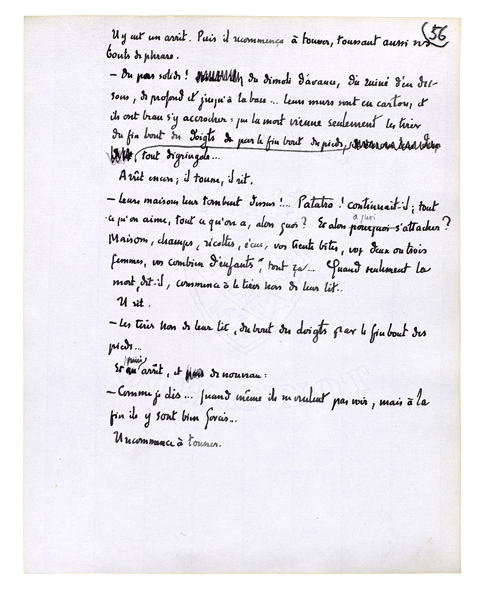 56
Il y eut un arrêt. Puis il recommença à tousser, toussant aussi ses
bouts de phrase.
– Du pas solide ! du démoli d'avance, du ruiné d'en des-
sous, de profond et jusqu'à la base... Leurs murs sont en carton, et
ils ont beau s'y accrocher : que la mort vienne seulement les tirer
du fin bout des doigts par le fin bout du pied,
tout dégringole...
Arrêt encore ; il tousse, il rit.
– Leurs maisons leur tombent dessus !... Patatra ! continuait-il ; tout
ce qu'on aime, tout ce qu'on a, alors quoi ? Et alors à quoi s'attacher ?
Maisons, champs, récoltes, écus, vos trente bêtes, vos deux ou trois
femmes, vos combien d'enfants, tout ça... Quand seulement la
mort, dit-il, commence à le tirer hors de leur lit..
Il rit.
– Les tirer hors de leur lit, du bout des doigts par le fin bout des
pieds...
Et puis arrêt, et de nouveau :
– Comme je dis... Quand même ils ne veulent pas voir, mais à la
fin ils y sont bien forcés...
Il recommence à tousser.